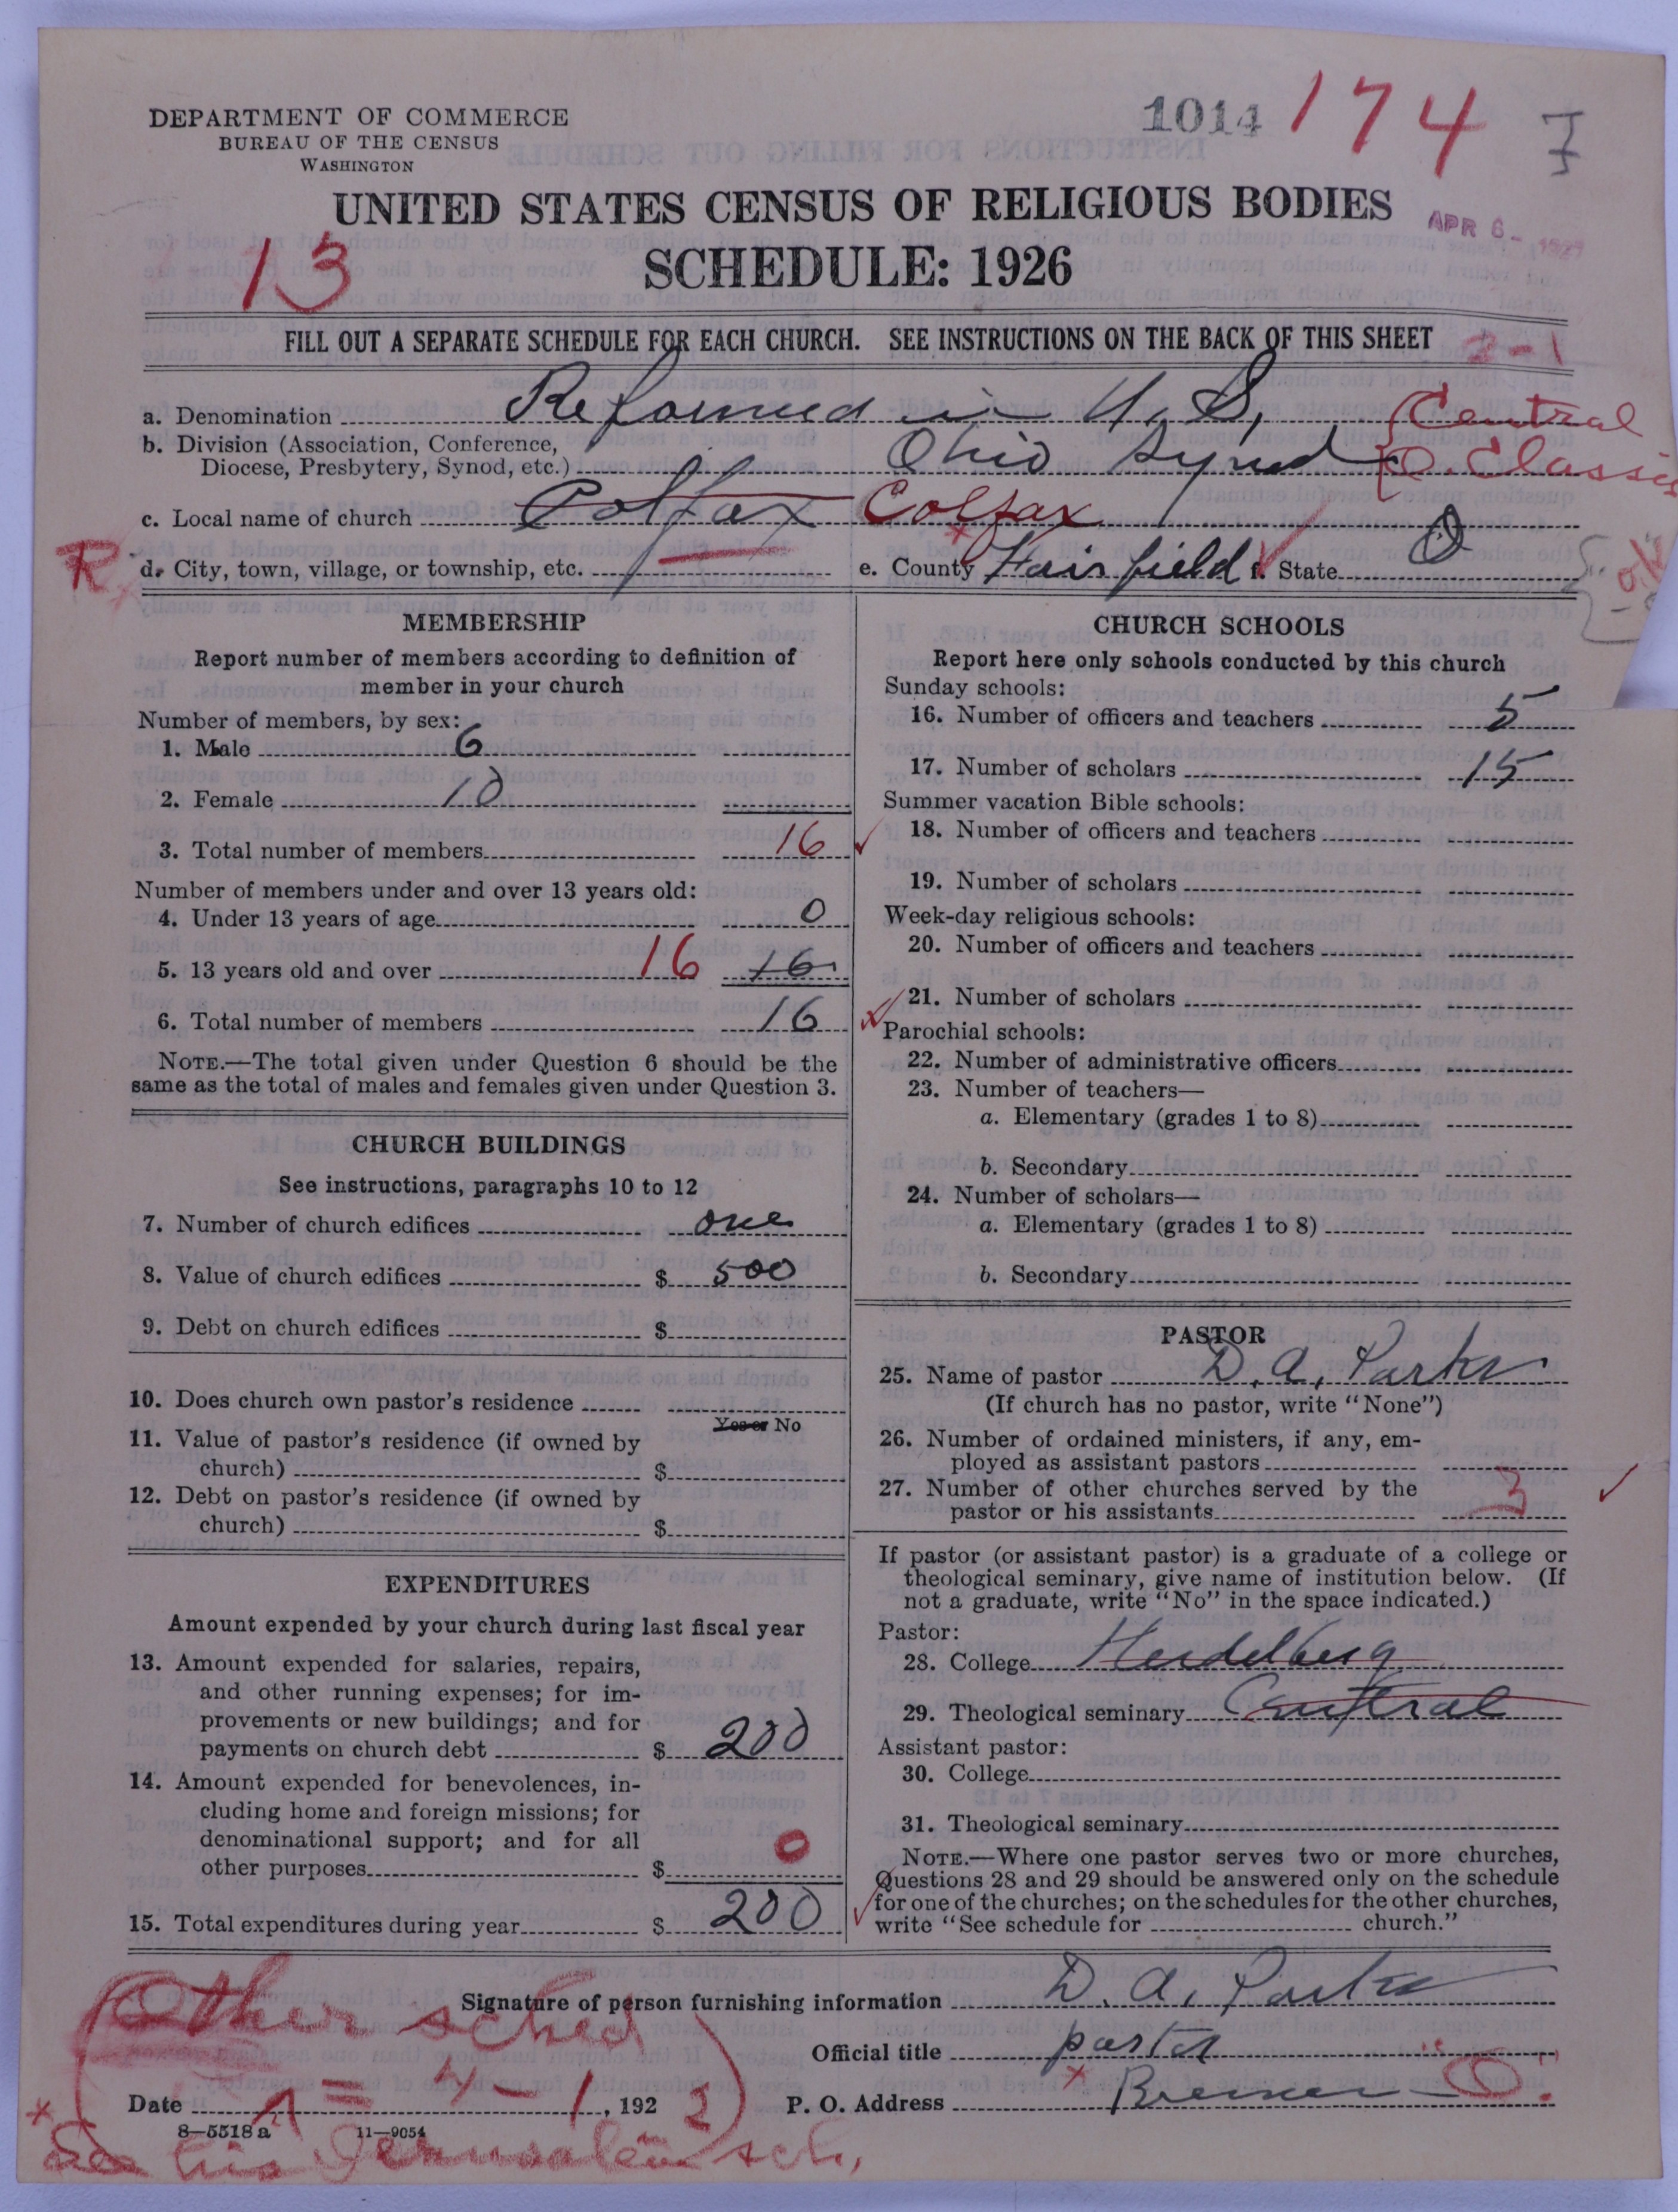 DEPARTMENT OF COMMERCE
BUREAU OF THE CENSUS
WASHINGTON
1014 174
UNITED STATES CENSUS OF RELIGIOUS BODIES
APR 6 - 1927
13
SCHEDULE: 1926
FILL OUT A SEPARATE SCHEDULE FOR EACH CHURCH. SEE INSTRUCTIONS ON THE BACK OF THIS SHEET
3-1
a. Denomination Reformed in U. S. Central
b. Division (Association, Conference,
Diocese, Presbytery, Synod, etc.) Ohio Synod O. Classis
c. Local name of church Colfax Colfax
R
d. City, town, village, or township, etc. e. County Fairfield f. State O
MEMBERSHIP
Report number of members according to definition of
member in your church
Number of members, by sex:
1. Male 6
2. Female 10
3. Total number of members 16
Number of members under and over 13 years old:
4. Under 13 years of age 0
5. 13 years old and over 16 16
6. Total number of members 16
NOTE.—The total given under Question 6 should be the
same as the total of males and females given under Question 3.
CHURCH BUILDINGS
See instructions, paragraphs 10 to 12
7. Number of church edifices one
8. Value of church edifices $ 500
9. Debt on church edifices $
10. Does church own pastor's residence
Yes or No
11. Value of pastor's residence (if owned by
church) $
12. Debt on pastor's residence (if owned by
church) $
EXPENDITURES
Amount expended by your church during last fiscal year
13. Amount expended for salaries, repairs,
and other running expenses; for im-
provements or new buildings; and for
payments on church debt $ 200
14. Amount expended for benevolences, in-
cluding home and foreign missions; for
denominational support; and for all
other purposes $ 0
15. Total expenditures during year $ 200
CHURCH SCHOOLS
Report here only schools conducted by this church
Sunday schools:
16. Number of officers and teachers 5
17. Number of scholars 15
Summer vacation Bible schools:
18. Number of officers and teachers
19. Number of scholars
Week-day religious schools:
20. Number of officers and teachers
21. Number of scholars
Parochial schools:
22. Number of administrative officers
23. Number of teachers—
a. Elementary (grades 1 to 8)
b. Secondary
24. Number of scholars—
a. Elementary (grades 1 to 8)
b. Secondary
PASTOR
25. Name of pastor D. A. Parks
(If church has no pastor, write "None")
26. Number of ordained ministers, if any, em-
ployed as assistant pastors
27. Number of other churches served by the
pastor or his assistants 3
If pastor (or assistant pastor) is a graduate of a college or
theological seminary, give name of institution below. (If
not a graduate, write "No" in the space indicated.)
Pastor:
28. College Heidelberg
29. Theological seminary Central
Assistant pastor:
30. College
31. Theological seminary
NOTE.—Where one pastor serves two or more churches,
Questions 28 and 29 should be answered only on the schedule
for one of the churches; on the schedules for the other churches,
write "See schedule for church."
Other sched
Signature of person furnishing information D. A. Parks
Official title pastor
Date , 192 P. O. Address Bremen O.
4-1
8—5518 a 11—9054
See his Jerusalem sch.